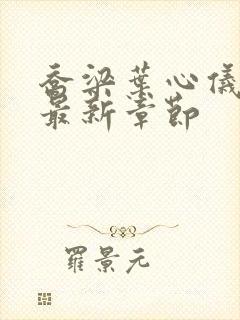 乔梁葉心儀
最新章節
羅景元